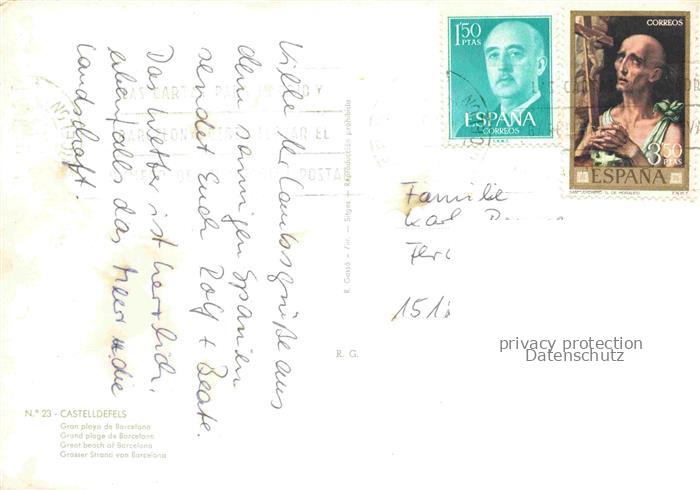 Viele Urlaubsgrüße aus
dem sonnigen Spanien
sendet Euch Rolf + Beate.
Das Wetter ist herrlich,
ebenfalls das Meer u. die
Landschaft.
1'50
PTAS
ESPAÑA
CORREOS
CORREOS
3'50
PTAS
ESPAÑA
Familie
Karl
151
privacy protection
Datenschutz
R. Gassó - Fot. - Sitges - Reproducción prohibida
R. G.
N.º 23 - CASTELLDEFELS
Gran playa de Barcelona
Grand plage de Barcelona
Great beach of Barcelona
Grosser Strand von Barcelona